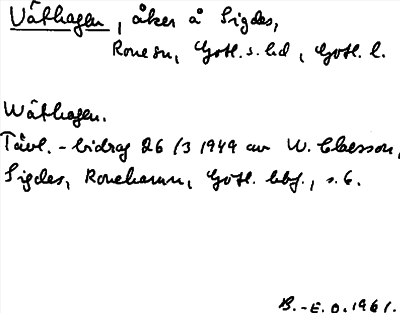 Våthagen, åker å Sigdes,
Rone sn, Gotl. s. hd, Gotl. l.
Wåthagen.
Tävl.-bidrag 26/3 1949 av W. Claesson,
Sigdes, Ronehamn, Gotl. bbf., s. 6.
B.-E.O. 1961.